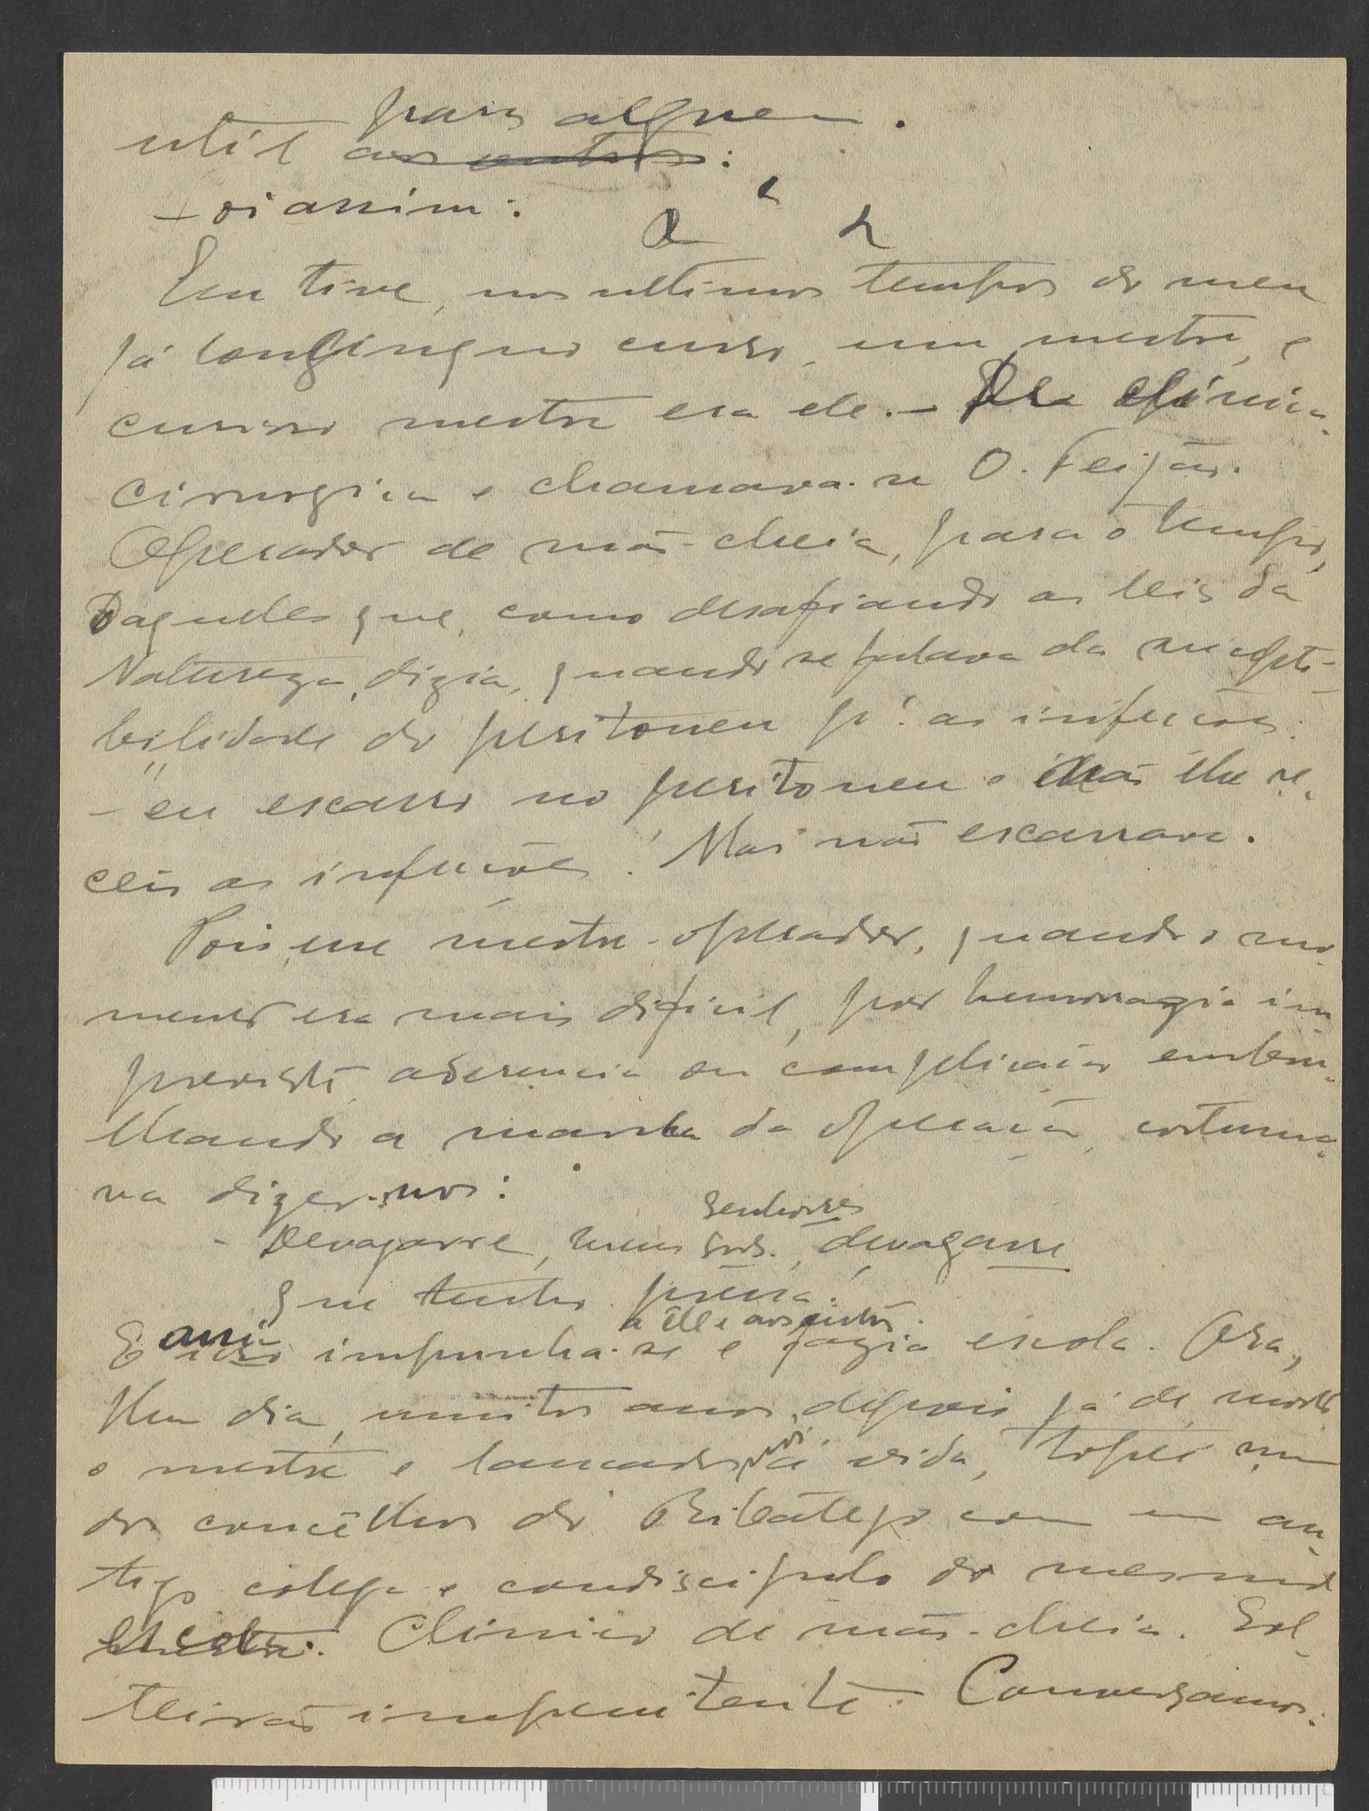 para alguem.
util aos outros:
Foi assim:
Eu tive, nos ultimos tempos do meu
já longinquo curso, um mestre, e
curioso mestre era ele. – De clinica
cirurgica e chamava-se O. Feijão.
Operador de mão-cheia, para o tempo,
Daqueles que, como desafiando as leis da
Natureza, dizia, quando se falava da suscepti-
bilidade do peritoneu pª as infecções:
– "eu escarro no peritoneu e não lhe re-
ceio as infecções! Mas não escarrava.
Pois, esse mestre-operador, quando o mo-
mento era mais dificil, por hemorragia im-
prevista, aderencia ou complicação embru-
lhando a marcha da operação, costuma-
va dizer-nos:
senhores
– Devagarre, meus Snrs., devagarre
que tenho pressa!
a êle e aos outros.
E assim impunha-se e fazia escola. Ora,
Um dia, muitos anos depois já de morto
o mestre e lançados nós á vida, topei num
dos concelhos do Ribatejo com um an-
tigo colega e condiscipulo do mesmo
mestre. Clinico de mão-cheia. Sol-
teirão impenitente. Conversamos: